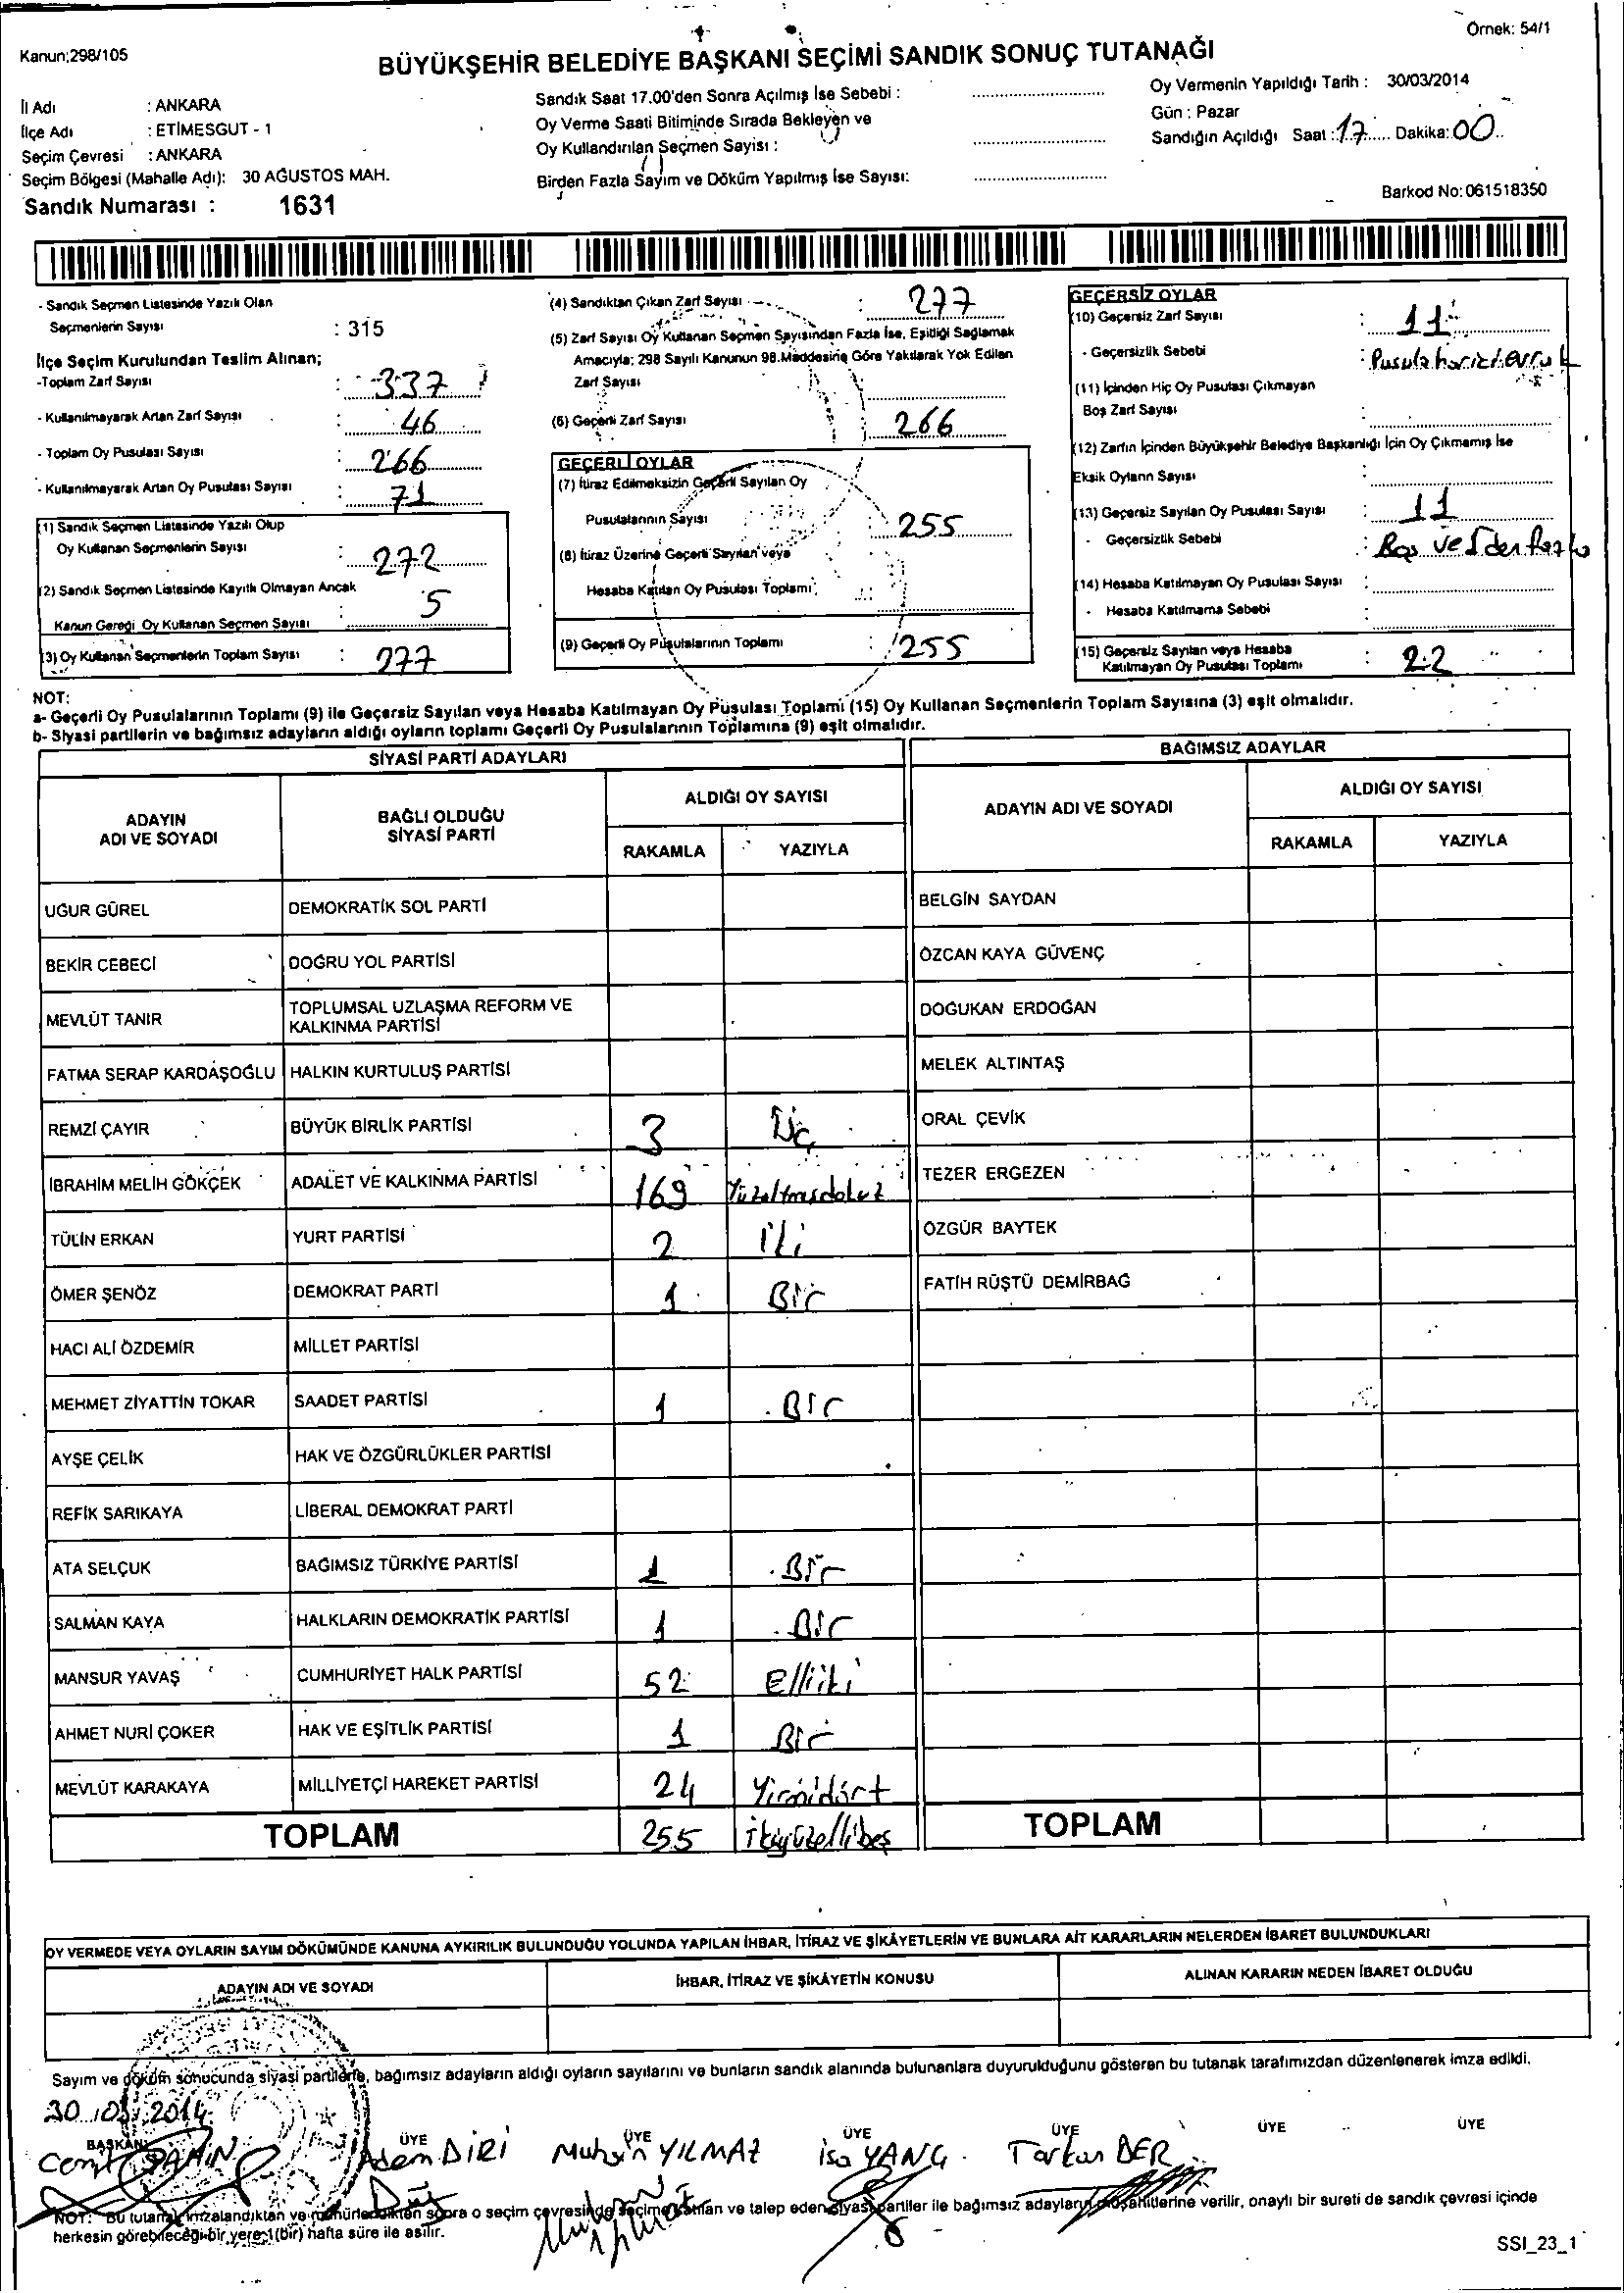 Örnek: 54/1
Kanun;298/105
BÜYÜKŞEHİR BELEDİYE BAŞKANI SEÇİMİ SANDIK SONUÇ TUTANAĞI
İl Adı : ANKARA
İlçe Adı : ETİMESGUT - 1
Seçim Çevresi : ANKARA
Seçim Bölgesi (Mahalle Adı): 30 AĞUSTOS MAH.
Sandık Numarası : 1631
Sandık Saat 17.00'den Sonra Açılmış İse Sebebi :
Oy Verme Saati Bitiminde Sırada Bekleyen ve
Oy Kullandırılan Seçmen Sayısı :
Birden Fazla Sayım ve Döküm Yapılmış İse Sayısı:
Oy Vermenin Yapıldığı Tarih : 30/03/2014
Gün : Pazar
Sandığın Açıldığı Saat : 17 Dakika: 00
Barkod No: 061518350
- Sandık Seçmen Listesinde Yazılı Olan
Seçmenlerin Sayısı : 315
İlçe Seçim Kurulundan Teslim Alınan;
-Toplam Zarf Sayısı : 337
- Kullanılmayarak Artan Zarf Sayısı : 46
- Toplam Oy Pusulası Sayısı : 266
- Kullanılmayarak Artan Oy Pusulası Sayısı : 71
(1) Sandık Seçmen Listesinde Yazılı Olup
Oy Kullanan Seçmenlerin Sayısı : 272
(2) Sandık Seçmen Listesinde Kayıtlı Olmayan Ancak
Kanun Gereği Oy Kullanan Seçmen Sayısı : 5
(3) Oy Kullanan Seçmenlerin Toplam Sayısı : 277
(4) Sandıktan Çıkan Zarf Sayısı : 277
(5) Zarf Sayısı Oy Kullanan Seçmen Sayısından Fazla İse, Eşitliği Sağlamak
Amacıyla; 298 Sayılı Kanunun 98.Maddesine Göre Yakılarak Yok Edilen
Zarf Sayısı
(6) Geçerli Zarf Sayısı : 266
GEÇERLİ OYLAR
(7) İtiraz Edilmeksizin Geçerli Sayılan Oy
Pusulalarının Sayısı : 255
(8) İtiraz Üzerine Geçerli Sayılan veya
Hesaba Katılan Oy Pusulası Toplamı :
(9) Geçerli Oy Pusulalarının Toplamı : 255
GEÇERSİZ OYLAR
(10) Geçersiz Zarf Sayısı : 11
- Geçersizlik Sebebi : Pusula harici evrak
(11) İçinden Hiç Oy Pusulası Çıkmayan
Boş Zarf Sayısı :
(12) Zarfın İçinden Büyükşehir Belediye Başkanlığı İçin Oy Çıkmamış İse
Eksik Oyların Sayısı :
(13) Geçersiz Sayılan Oy Pusulası Sayısı : 11
- Geçersizlik Sebebi : Boş ve 1 den fazla
(14) Hesaba Katılmayan Oy Pusulası Sayısı :
- Hesaba Katılmama Sebebi :
(15) Geçersiz Sayılan veya Hesaba
Katılmayan Oy Pusulası Toplamı : 22
NOT:
a- Geçerli Oy Pusulalarının Toplamı (9) ile Geçersiz Sayılan veya Hesaba Katılmayan Oy Pusulası Toplamı (15) Oy Kullanan Seçmenlerin Toplam Sayısına (3) eşit olmalıdır.
b- Siyasi partilerin ve bağımsız adayların aldığı oyların toplamı Geçerli Oy Pusulalarının Toplamına (9) eşit olmalıdır.
SİYASİ PARTİ ADAYLARI
ADAYIN ADI VE SOYADI BAĞLI OLDUĞU SİYASİ PARTİ ALDIĞI OY SAYISI
RAKAMLA YAZIYLA
UĞUR GÜREL DEMOKRATİK SOL PARTİ
BEKİR CEBECİ DOĞRU YOL PARTİSİ
MEVLÜT TANIR TOPLUMSAL UZLAŞMA REFORM VE KALKINMA PARTİSİ
FATMA SERAP KARDAŞOĞLU HALKIN KURTULUŞ PARTİSİ
REMZİ ÇAYIR BÜYÜK BİRLİK PARTİSİ 3 Üç
İBRAHİM MELİH GÖKÇEK ADALET VE KALKINMA PARTİSİ 169 Yüzaltmışdokuz
TÜLİN ERKAN YURT PARTİSİ 2 iki
ÖMER ŞENÖZ DEMOKRAT PARTİ 1 Bir
HACI ALİ ÖZDEMİR MİLLET PARTİSİ
MEHMET ZİYATTİN TOKAR SAADET PARTİSİ 1 Bir
AYŞE ÇELİK HAK VE ÖZGÜRLÜKLER PARTİSİ
REFİK SARIKAYA LİBERAL DEMOKRAT PARTİ
ATA SELÇUK BAĞIMSIZ TÜRKİYE PARTİSİ 1 Bir
SALMAN KAYA HALKLARIN DEMOKRATİK PARTİSİ 1 Bir
MANSUR YAVAŞ CUMHURİYET HALK PARTİSİ 52 Elliiki
AHMET NURİ ÇOKER HAK VE EŞİTLİK PARTİSİ 1 Bir
MEVLÜT KARAKAYA MİLLİYETÇİ HAREKET PARTİSİ 24 Yirmidört
TOPLAM 255 ikiyüzellibeş
BAĞIMSIZ ADAYLAR
ADAYIN ADI VE SOYADI ALDIĞI OY SAYISI
RAKAMLA YAZIYLA
BELGİN SAYDAN
ÖZCAN KAYA GÜVENÇ
DOĞUKAN ERDOĞAN
MELEK ALTINTAŞ
ORAL ÇEVİK
TEZER ERGEZEN
ÖZGÜR BAYTEK
FATİH RÜŞTÜ DEMİRBAĞ
TOPLAM
OY VERMEDE VEYA OYLARIN SAYIM DÖKÜMÜNDE KANUNA AYKIRILIK BULUNDUĞU YOLUNDA YAPILAN İHBAR, İTİRAZ VE ŞİKÂYETLERİN VE BUNLARA AİT KARARLARIN NELERDEN İBARET BULUNDUKLARI
ADAYIN ADI VE SOYADI İHBAR, İTİRAZ VE ŞİKÂYETİN KONUSU ALINAN KARARIN NEDEN İBARET OLDUĞU
Sayım ve döküm sonucunda siyasi partilerle, bağımsız adayların aldığı oyların sayılarını ve bunların sandık alanında bulunanlara duyurulduğunu gösteren bu tutanak tarafımızdan düzenlenerek imza edildi.
30/03/2014
BAŞKAN ÜYE ÜYE ÜYE ÜYE ÜYE ÜYE
Adem DİRİ Muhsin YILMAZ isa YANG Tarkan DER
NOT: Bu tutanak imzalandıktan ve mühürlendikten sonra o seçim çevresinde seçime katılan ve talep eden siyasi partiler ile bağımsız adayların müşahitlerine verilir, onaylı bir sureti de sandık çevresi içinde
herkesin görebileceği bir yere 1(bir) hafta süre ile asılır.
SSI_23_1